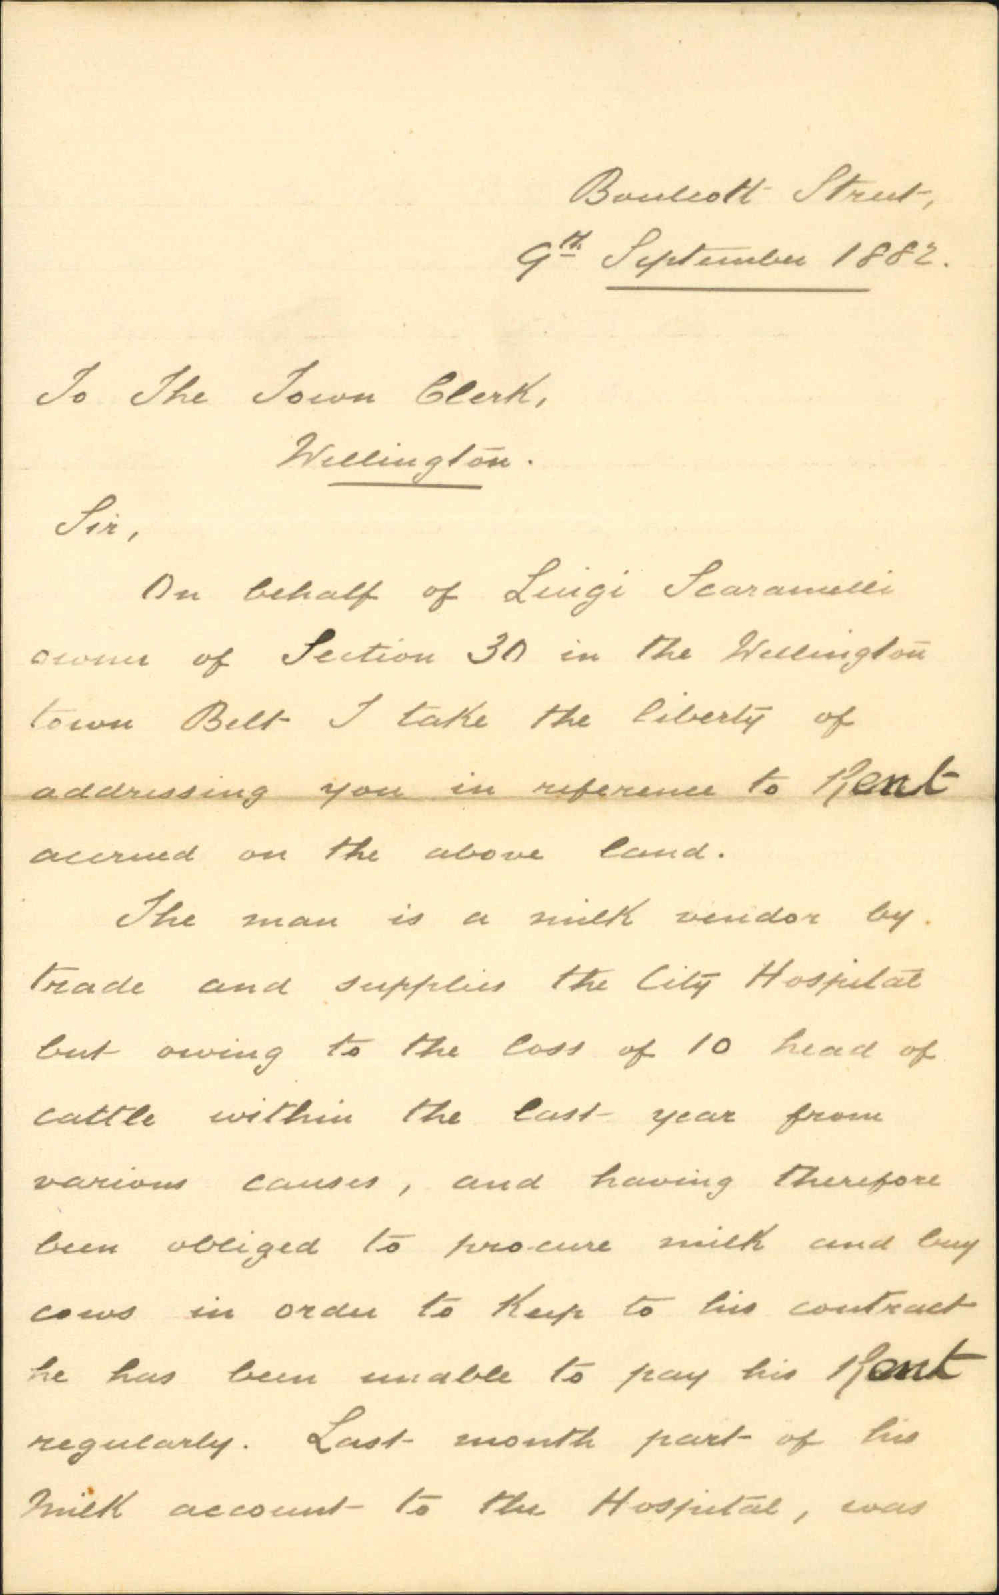 Boulcott Street,
9th September 1882.
To The Town Clerk,
Wellington.
Sir,
On behalf of Luigi Scaramelli
owner of Section 30 in the Wellington
town Belt I take the liberty of
addressing you in reference to Rent
accrued on the above land.
The man is a milk vendor by
trade and supplies the City Hospital
but owing to the loss of 10 head of
cattle within the last year from
various causes, and having therefore
been obliged to procure milk and buy
cows in order to keep to his contract
he has been unable to pay his Rent
regularly. Last month part of his
milk account to the Hospital, was